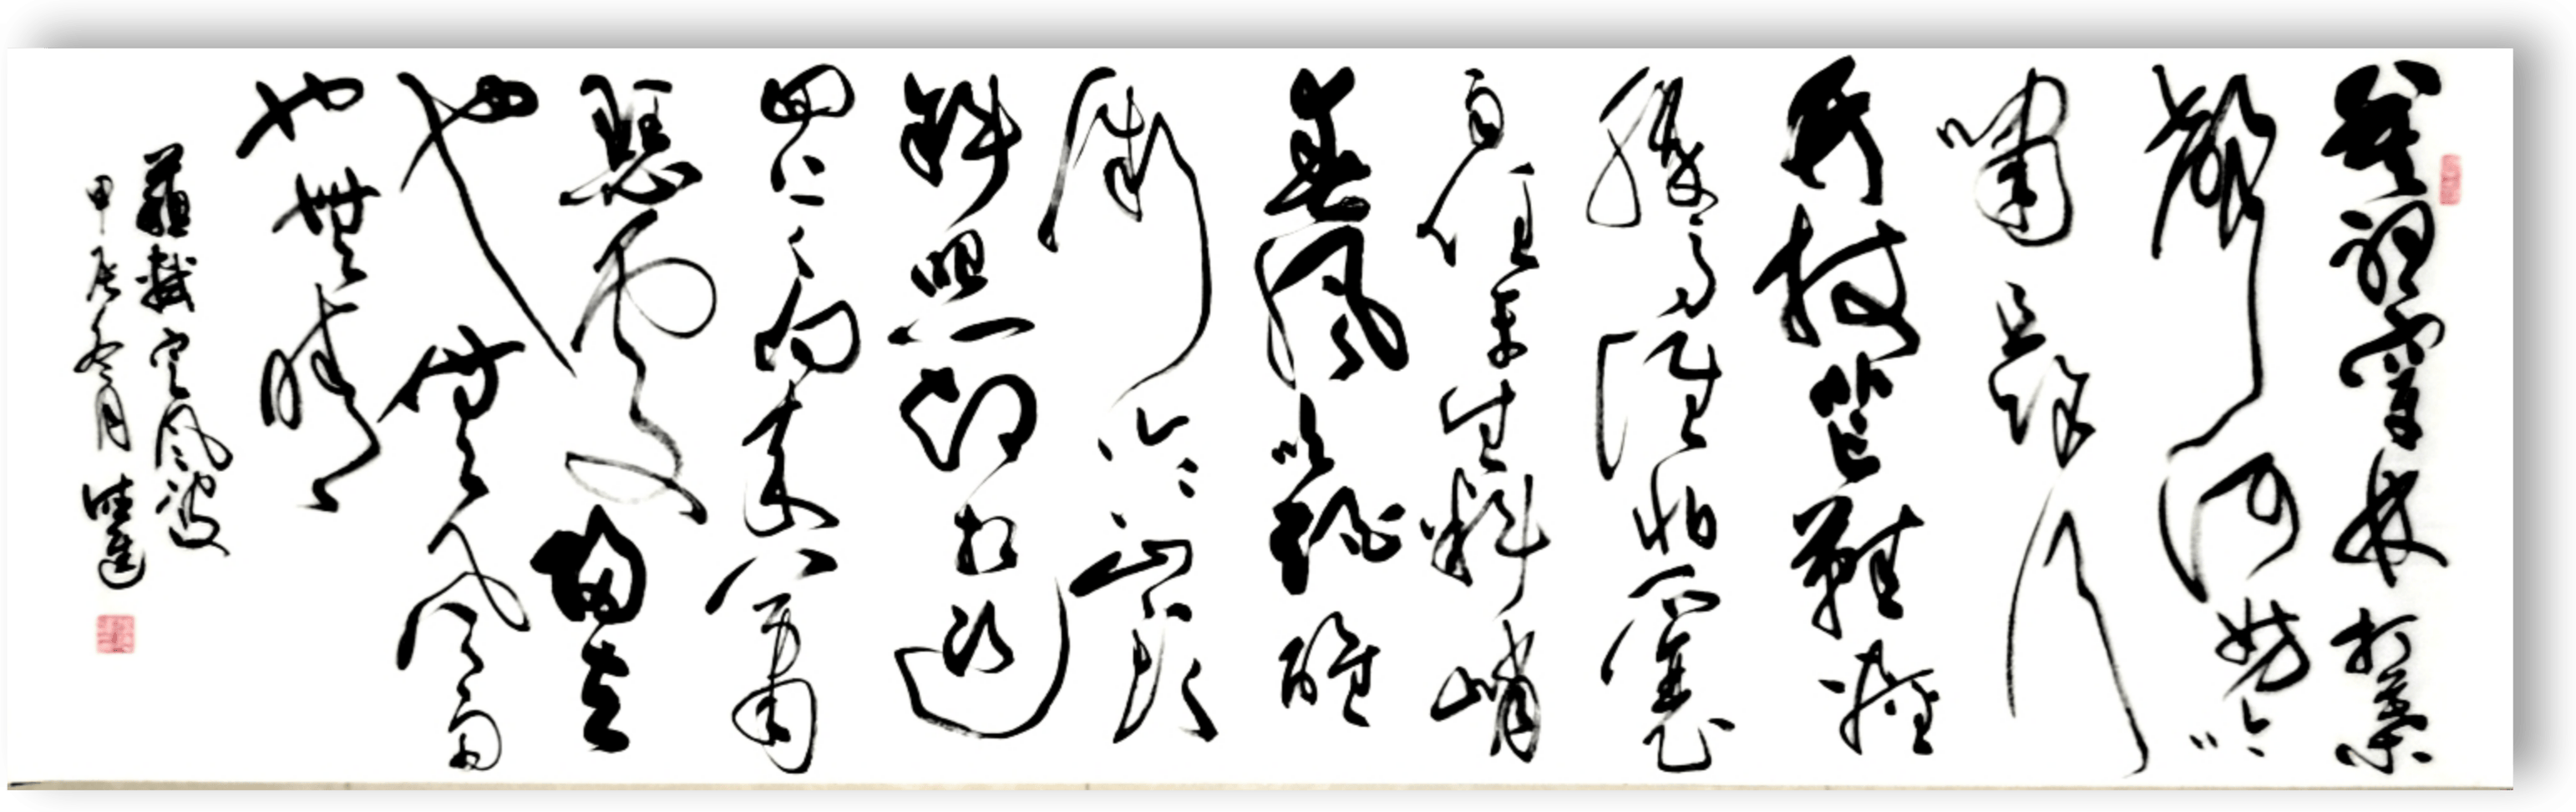 莫聽穿林打葉
聲何妨吟
嘯且徐行
竹杖芒鞋輕
勝馬誰怕一蓑
任平生料峭
春風吹酒醒
微冷山頭
斜照却相迎
回首向來蕭
瑟處歸去
也無風雨
也無晴
蘇軾定風波
甲辰冬月